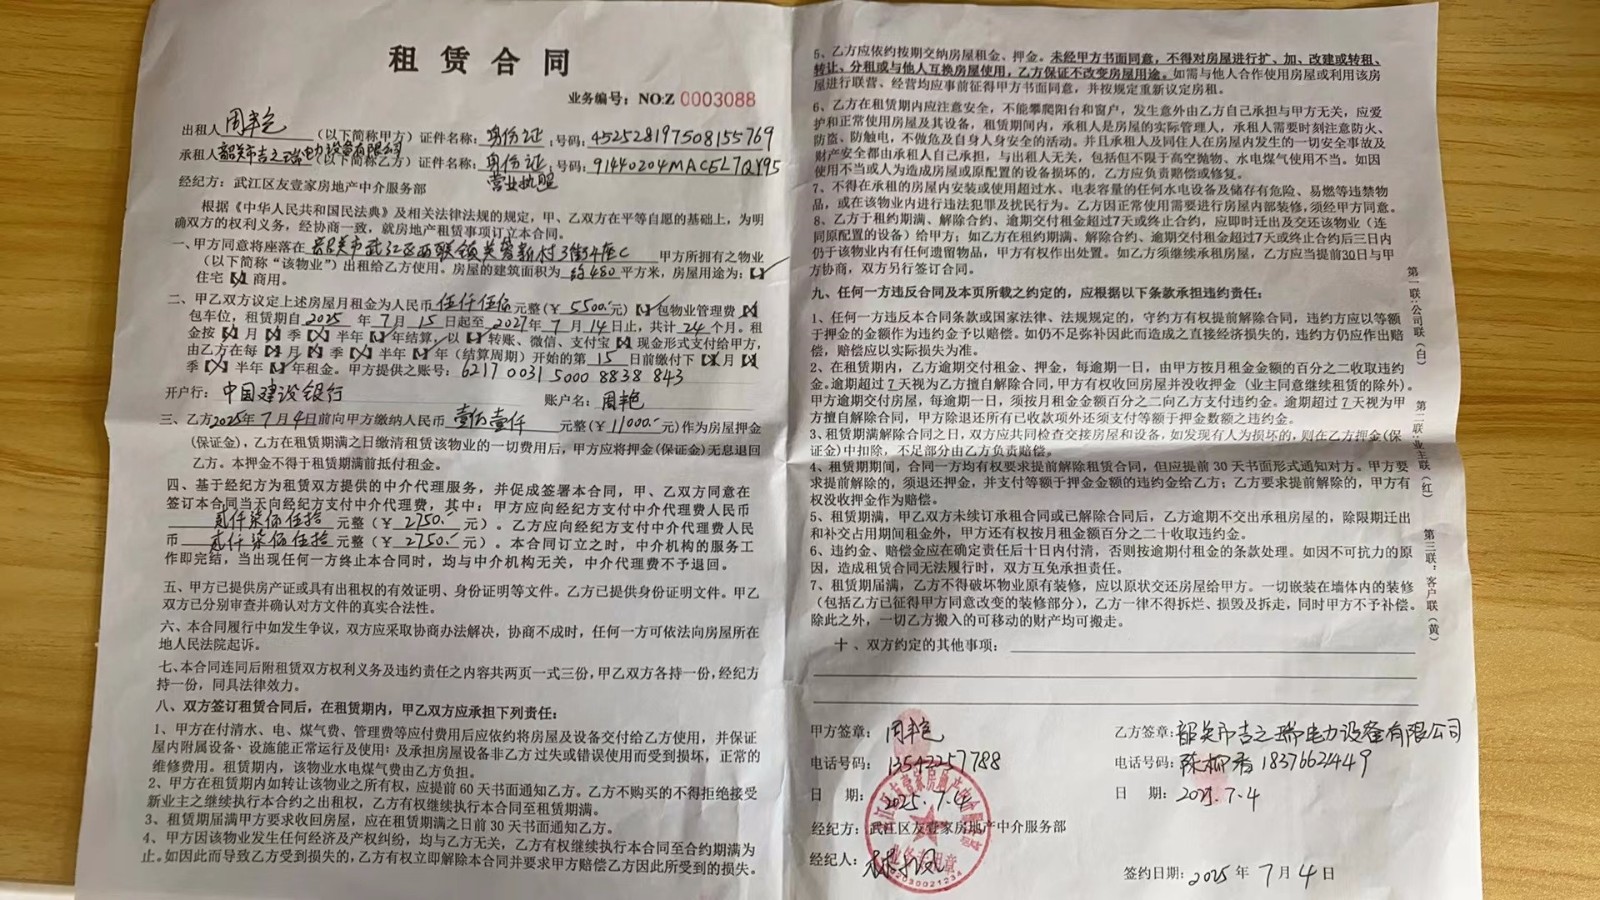 租赁合同
业务编号：NO:Z 0003088
出租人周艳（以下简称甲方）证件名称：身份证，号码：452528197508155769
承租人韶关市吉之瑞电力设备有限公司（以下简称乙方）证件名称：身份证，号码：91440204MAC5L7QY95
营业执照
经纪方：武江区友壹家房地产中介服务部
根据《中华人民共和国民法典》及相关法律法规的规定，甲、乙双方在平等自愿的基础上，为明
确双方的权利义务，经协商一致，就房地产租赁事项订立本合同。
一、甲方同意将座落在 韶关市武江区西联镇芙蓉新村3街4座C 甲方所拥有之物业
（以下简称“该物业”）出租给乙方使用。房屋的建筑面积为 约480 平方米，房屋用途为：【】
住宅【】商用。
二、甲乙双方议定上述房屋月租金为人民币 伍仟伍佰 元整（￥ 5500.- 元）【】包物业管理费【】
包车位，租赁期自 2025 年 7 月 15 日起至 2027 年 7 月 14 日止，共计 24 个月。租
金按【】月【】季【】半年【】年结算，以【】转账、微信、支付宝【】现金形式支付给甲方，
由乙方在每【】月【】季【】半年【】年（结算周期）开始的第 15 日前缴付下【】月【】
季【】半年【】年租金。甲方提供之账号：6217 0031 5000 8838 843
开户行：中国建设银行 账户名：周艳
三、乙方2025年7月4日前向甲方缴纳人民币 壹仟 元整（￥11000.-元）作为房屋押金
（保证金），乙方在租赁期满之日缴清租赁该物业的一切费用后，甲方应将押金（保证金）无息退回
乙方。本押金不得于租赁期满前抵付租金。
四、基于经纪方为租赁双方提供的中介代理服务，并促成签署本合同，甲、乙双方同意在
签订本合同当天向经纪方支付中介代理费，其中：甲方应向经纪方支付中介代理费人民币
贰仟柒佰伍拾 元整（￥ 2750.- 元）。乙方应向经纪方支付中介代理费人民
币 贰仟柒佰伍拾 元整（￥ 2750.- 元）。本合同订立之时，中介机构的服务工
作即完结，当出现任何一方终止本合同时，均与中介机构无关，中介代理费不予退回。
五、甲方已提供房产证或具有出租权的有效证明、身份证明等文件。乙方已提供身份证明文件。甲乙
双方已分别审查并确认对方文件的真实合法性。
六、本合同履行中如发生争议，双方应采取协商办法解决，协商不成时，任何一方可依法向房屋所在
地人民法院起诉。
七、本合同连同后附租赁双方权利义务及违约责任之内容共两页一式三份，甲乙双方各持一份，经纪方
持一份，同具法律效力。
八、双方签订租赁合同后，在租赁期内，甲乙双方应承担下列责任：
1、甲方在付清水、电、煤气费、管理费等应付费用后应依约将房屋及设备交付给乙方使用，并保证
屋内附属设备、设施能正常运行及使用；及承担房屋设备非乙方过失或错误使用而受到损坏，正常的
维修费用。租赁期内，该物业水电煤气费由乙方负担。
2、甲方在租赁期内如转让该物业之所有权，应提前60天书面通知乙方。乙方不购买的不得拒绝接受
新业主之继续执行本合约之出租权，乙方有权继续执行本合同至租赁期满。
3、租赁期届满甲方要求收回房屋，应在租赁期满之日前30天书面通知乙方。
4、甲方因该物业发生任何经济及产权纠纷，均与乙方无关，乙方有权继续执行本合同至合约期满为
止。如因此而导致乙方受到损失的，乙方有权立即解除本合同并要求甲方赔偿乙方因此所受到的损失。
5、乙方应依约按期交纳房屋租金、押金。未经甲方书面同意，不得对房屋进行扩、加、改建或转租、
转让、分租或与他人互换房屋使用，乙方保证不改变房屋用途。如需与他人合作使用房屋或利用该房
屋进行联营、经营均应事前征得甲方书面同意，并按规定重新议定房租。
6、乙方在租赁期内应注意安全，不能攀爬阳台和窗户，发生意外由乙方自己承担与甲方无关，应爱
护和正常使用房屋及其设备，租赁期间内，承租人是房屋的实际管理人，承租人需要时刻注意防火、
防盗、防触电，不做危及自身人身安全的活动。并且承租人及同住人在房屋内发生的一切安全事故及
财产安全都由承租人自己承担，与出租人无关，包括但不限于高空抛物、水电煤气使用不当。如因
使用不当或人为造成房屋或原配置的设备损坏的，乙方应负责赔偿或修复。
7、不得在承租的房屋内安装或使用超过水、电表容量的任何水电设备及储存有危险、易燃等违禁物
品，或在该物业内进行违法犯罪及扰民行为。乙方因正常使用需要进行房屋内部装修，须经甲方同意。
8、乙方于租约期满、解除合约、逾期交付租金超过7天或终止合约，应即时迁出及交还该物业（连
同原配置的设备）给甲方；如乙方在租约期满、解除合约、逾期交付租金超过7天或终止合约后三日内
仍于该物业内有任何遗留物品，甲方有权作出处置。如乙方须继续承租房屋，乙方应当提前30日与甲
方协商，双方另行签订合同。
九、任何一方违反合同及本页所载之约定的，应根据以下条款承担违约责任：
1、任何一方违反本合同条款或国家法律、法规规定的，守约方有权提前解除合同，违约方应以等额
于押金的金额作为违约金予以赔偿。如仍不足弥补因此而造成之直接经济损失的，违约方仍应作出赔
偿，赔偿应以实际损失为准。
2、在租赁期内，乙方逾期交付租金、押金，每逾期一日，由甲方按月租金金额的百分之二收取违约
金。逾期超过7天视为乙方擅自解除合同，甲方有权收回房屋并没收押金（业主同意继续租赁的除外）。
甲方逾期交付房屋，每逾期一日，须按月租金金额百分之二向乙方支付违约金。逾期超过7天视为甲
方擅自解除合同，甲方除退还所有已收款项外还须支付等额于押金数额之违约金。
3、租赁期满解除合同之日，双方应共同检查交接房屋和设备，如发现有人为损坏的，则在乙方押金（保
证金）中扣除，不足部分由乙方负责赔偿。
4、租赁期期间，合同一方均有权要求提前解除租赁合同，但应提前30天书面形式通知对方。甲方要
求提前解除的，须退还押金，并支付等额于押金金额的违约金给乙方；乙方要求提前解除的，甲方有
权没收押金作为赔偿。
5、租赁期满，甲乙双方未续订承租合同或已解除合同后，乙方逾期不交出承租房屋的，除限期迁出
和补交占用期间租金外，甲方还有权按月租金额百分之二十收取违约金。
6、违约金、赔偿金应在确定责任后十日内付清，否则按逾期付租金的条款处理。如因不可抗力的原
因，造成租赁合同无法履行时，双方互免承担责任。
7、租赁期届满，乙方不得破坏物业原有装修，应以原状交还房屋给甲方。一切嵌装在墙体内的装修
（包括乙方已征得甲方同意改变的装修部分），乙方一律不得拆烂、损毁及拆走，同时甲方不予补偿。
除此之外，一切乙方搬入的可移动的财产均可搬走。
十、双方约定的其他事项：
甲方签章：周艳
电话号码：13542257788
日 期：2025.7.4
经纪方：武江区友壹家房地产中介服务部
经纪人：
乙方签章：韶关市吉之瑞电力设备有限公司
电话号码：陈柳香 18376621449
日 期：2025.7.4
签约日期：2025年7月4日
第一联：公司联（白）
第二联：业主联（红）
第三联：客户联（黄）
武江区友壹家房地产中介服务部
业务专用章